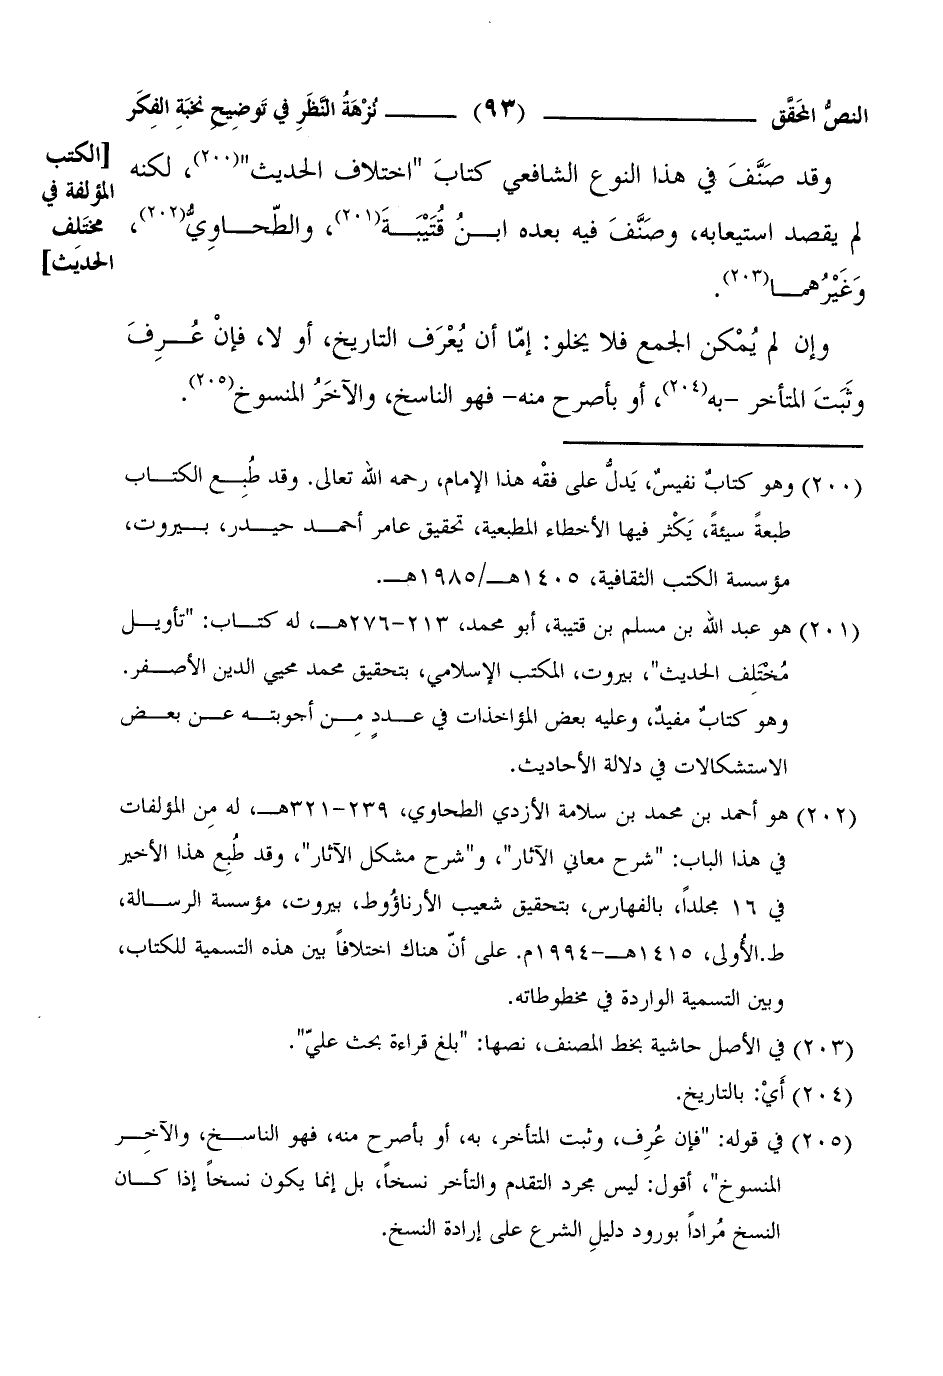 النصُّ المحَقَّق ــــــــ (٩٣) ــــــــ نُزْهَةُ النَّظَرِ في تَوضِيحِ نخبَةِ الفِكَر
وقد صنَّفَ في هذا النوع الشافعي كتابَ "اختلاف الحديث"(٢٠٠)، لكنه
لم يقصد استيعابه، وصنَّفَ فيه بعده ابنُ قُتَيْبَةَ(٢٠١)، والطّحاوِيُّ(٢٠٢)،
وغَيْرُهما(٢٠٣).
[الكتب
المؤلفة في
مختَلِف
الحديث]
وإن لم يُمْكن الجمع فلا يخلو: إمّا أن يُعْرَف التاريخ، أو لا، فإنْ عُرِفَ
وثَبَتَ المتأخر -به(٢٠٤)، أو بأصرح منه- فهو الناسخ، والآخَرُ المنسوخ(٢٠٥).
(٢٠٠) وهو كتابٌ نفيسٌ، يَدلُّ على فقْه هذا الإمام، رحمه الله تعالى. وقد طُبِع الكتاب
طبعةً سيئةً، يَكْثر فيها الأخطاء المطبعية، تحقيق عامر أحمد حيدر، بيروت،
مؤسسة الكتب الثقافية، ١٤٠٥هـ/١٩٨٥هـ.
(٢٠١) هو عبد الله بن مسلم بن قتيبة، أبو محمد، ٢١٣-٢٧٦هـ، له كتاب: "تأويل
مُخْتَلِف الحديث"، بيروت، المكتب الإسلامي، بتحقيق محمد محيي الدين الأصفر.
وهو كتابٌ مفيدٌ، وعليه بعض المؤاخذات في عددٍ مِن أجوبته عن بعض
الاستشكالات في دلالة الأحاديث.
(٢٠٢) هو أحمد بن محمد بن سلامة الأزدي الطحاوي، ٢٣٩-٣٢١هـ، له مِن المؤلفات
في هذا الباب: "شرح معاني الآثار"، و"شرح مشكل الآثار"، وقد طُبِع هذا الأخير
في ١٦ مجلداً، بالفهارس، بتحقيق شعيب الأرناؤوط، بيروت، مؤسسة الرسالة،
ط.الأُولى، ١٤١٥هـ-١٩٩٤م. على أنّ هناك اختلافاً بين هذه التسمية للكتاب،
وبين التسمية الواردة في مخطوطاته.
(٢٠٣) في الأصل حاشية بخط المصنف، نصها: "بلغ قراءة بحث عليّ".
(٢٠٤) أَيْ: بالتاريخ.
(٢٠٥) في قوله: "فإن عُرِف، وثبت المتأخر، به، أو بأصرح منه، فهو الناسخ، والآخِر
المنسوخ"، أقول: ليس مجرد التقدم والتأخر نسخاً، بل إنما يكون نسخاً إذا كان
النسخ مُراداً بورود دليلِ الشرع على إرادة النسخ.